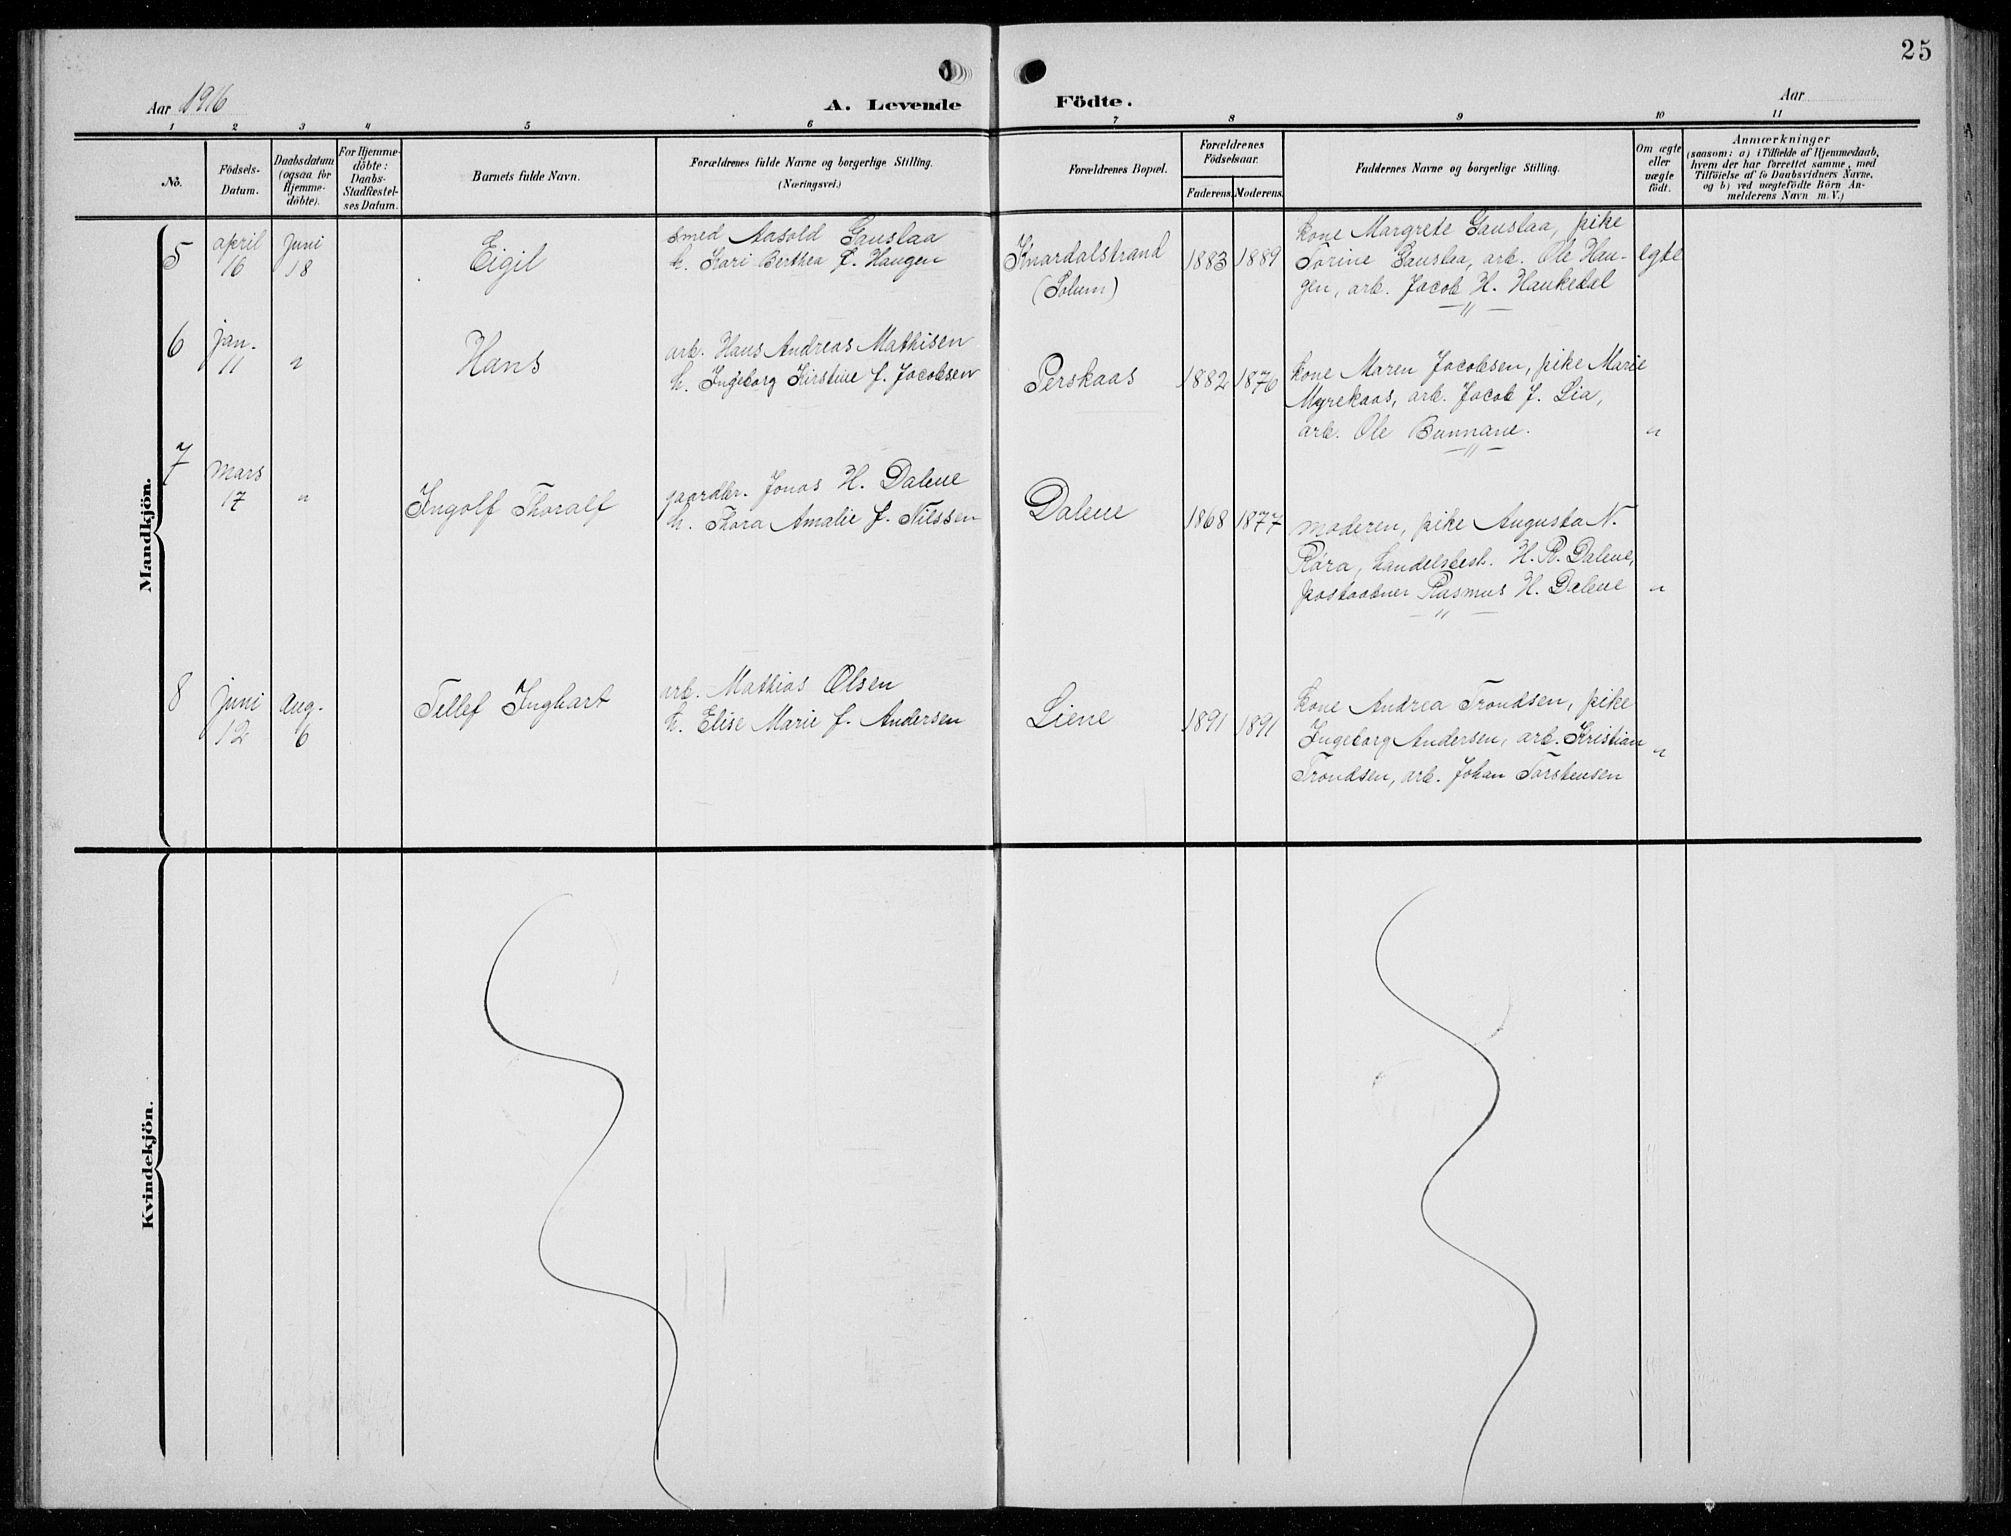 25
Aar 1916
A. Levende Födte.
Aar
1 2 3 4 5 6 7 8 9 10 11
No.
Födsels-
Datum.
Daabsdatum
(ogsaa for
Hjemme-
döbte).
For Hjemme-
döbte:
Daabs-
Stadfæstel-
ses Datum.
Barnets fulde Navn.
Forældrenes fulde Navne og borgerlige Stilling.
(Næringsvei.)
Forældrenes Bopæl.
Forældrenes
Födselsaar.
Faderens. Moderens.
Faddernes Navne og borgerlige Stilling.
Om ægte
eller
uægte
født.
Anmærkninger
(saasom: a) i Tilfælde af Hjemmedaab,
hvem der har forrettet samme, med
Tilföielse af to Daabsvidners Navne,
og b) ved uægtefödte Börn An-
melderens Navn m. V.)
Mandkjön.
5
april
16
Juni
18
Eigil
smed Aasold Gauslaa
h. Kari Berthea f. Haugen
Knardalstrand
(Solum)
1883 1889
kone Margrete Gauslaa, pike
Torine Gauslaa, arb. Ole Hau-
gen, arb. Jacob H. Haukedal
— " —
egte
6
jan.
11
"
Hans
arb. Hans Andreas Mathisen
h. Ingeborg Kirstine f. Jacobsen
Perskaas
1882 1876
kone Maren Jacobsen, pike Marie
Myrekaas, arb. Jacob J. Lia,
arb. Ole Bunnane.
— " —
"
7
mars
17
"
Ingolf Thoralf
gaardbr. Jonas H. Dalene
h. Thora Amalie f. Nilssen
Dalene
1868 1877
moderen, pike Augusta N.
Røra, handelsbest. H. R. Dalene,
postaabner Rasmus H. Dalene
— " —
"
8
juni
12
Aug.
6
Tellef Inghart
arb. Mathias Olsen
h. Elise Marie f. Andersen
Liene
1891 1891
kone Andrea Trondsen, pike
Ingeborg Andersen, arb. Kristian
Trondsen, arb. Johan Torstensen
"
Kvindekjön.